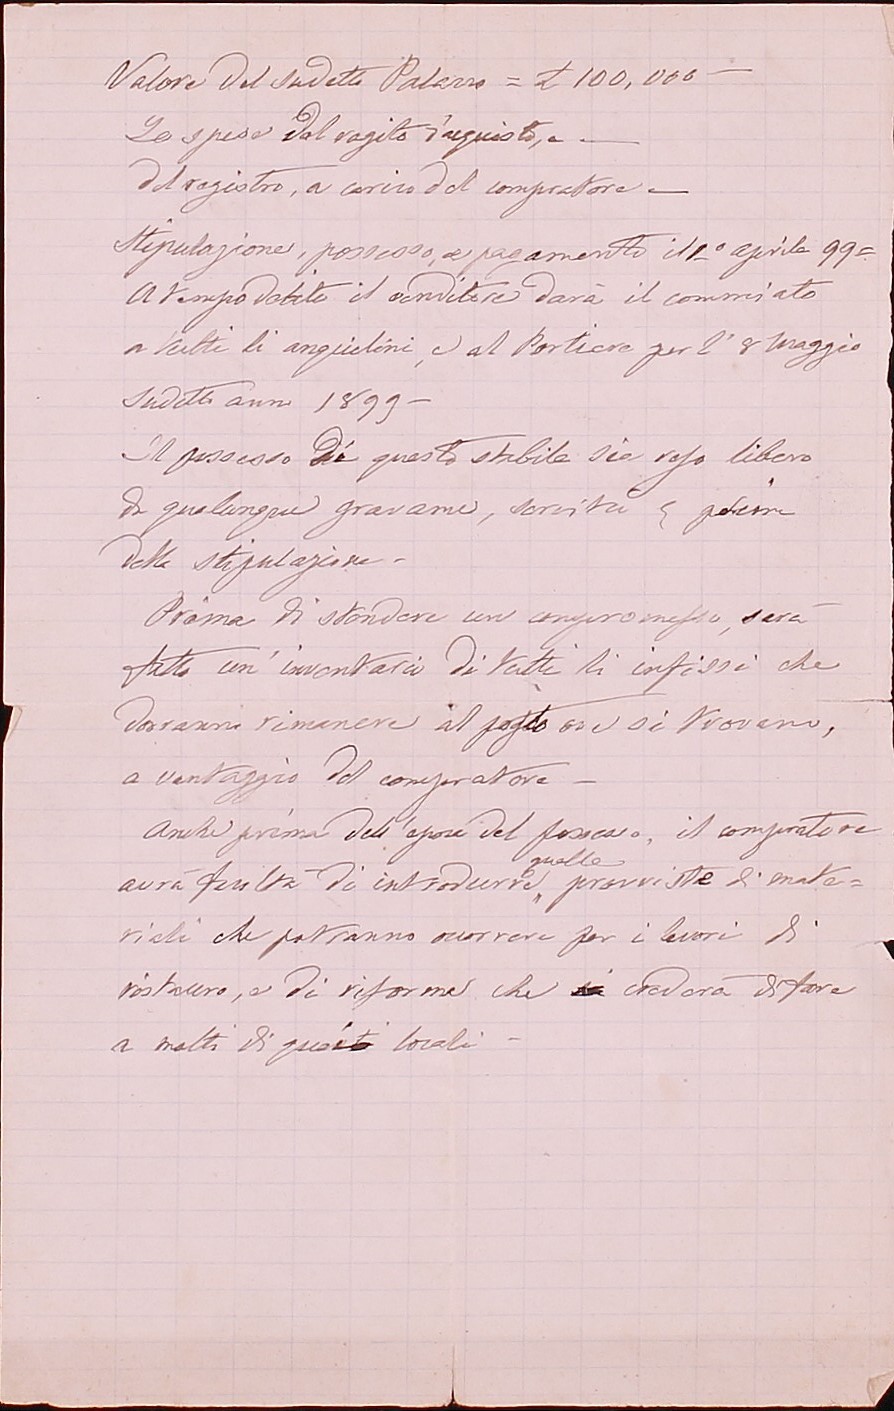 Valore del sudetto Palazzo = £ 100,000 —
Le spese del rogito d'acquisto, e —
del registro, a carico del compratore —
Stipulazione, possesso, e pagamento il 1º aprile 99=
A tempo debito il venditore darà il commiato
a tutti li inquilini, e al Portiere per l' 8 Maggio
sudetto anno 1899 —
Il possesso di questo stabile sia reso libero
da qualunque gravame, servitù prima
della stipulazione —
Prima di stendere un compromesso, sarà
fatto un' inventario di tutti li infissi che
dovranno rimanere al posto ove si trovano,
a vantaggio del compratore —
Anche prima dell'epoca del possesso, il compratore
avrà facoltà di introdurre quelle provviste di mate=
riali che potranno occorrere per i lavori di
ristauro, e di riforma che crederà di fare
a molti di questi locali —